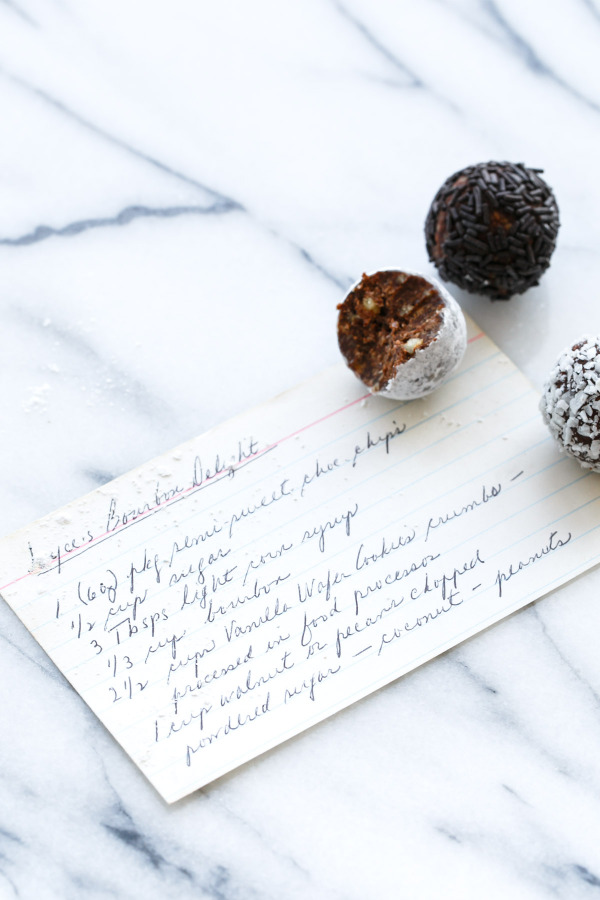 Joyce's Bourbon Delight
1 (6oz) pkg semi sweet choc chips
1/2 cup sugar
3 Tbsps light corn syrup
1/3 cup bourbon
2 1/2 cups Vanilla Wafer Cookies crumbs -
processed in food processor
1 cup walnut or pecans chopped
powdered sugar - coconut - peanuts